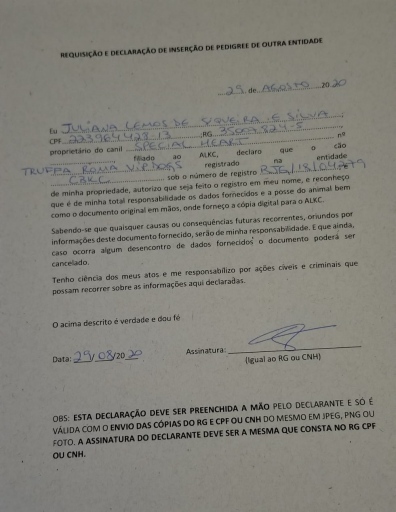 REQUISIÇÃO E DECLARAÇÃO DE INSERÇÃO DE PEDIGREE DE OUTRA ENTIDADE
29 de AGOSTO 2020
Eu JULIANA LEMOS DE SIQUEIRA E SILVA,
CPF 223964428 13 ;RG
proprietário do canil SPECIAL HEART nº
filiado ao ALKC, declaro que o cão
TRUFFA ROMA VIP DOGS registrado na entidade
CBKC sob o número de registro RJG/18/04779
de minha propriedade, autorizo que seja feito o registro em meu nome, e reconheço
que é de minha total responsabilidade os dados fornecidos e a posse do animal bem
como o documento original em mãos, onde forneço a cópia digital para o ALKC.
Sabendo-se que quaisquer causas ou consequências futuras recorrentes, oriundos por
informações deste documento fornecido, serão de minha responsabilidade. E que ainda,
caso ocorra algum desencontro de dados fornecidos o documento poderá ser
cancelado.
Tenho ciência dos meus atos e me responsabilizo por ações cíveis e criminais que
possam recorrer sobre as informações aqui declaradas.
O acima descrito é verdade e dou fé
Data: 29/08/2020 Assinatura:
(Igual ao RG ou CNH)
OBS: ESTA DECLARAÇÃO DEVE SER PREENCHIDA A MÃO PELO DECLARANTE E SÓ É
VÁLIDA COM O ENVIO DAS CÓPIAS DO RG E CPF OU CNH DO MESMO EM JPEG, PNG OU
FOTO. A ASSINATURA DO DECLARANTE DEVE SER A MESMA QUE CONSTA NO RG CPF
OU CNH.